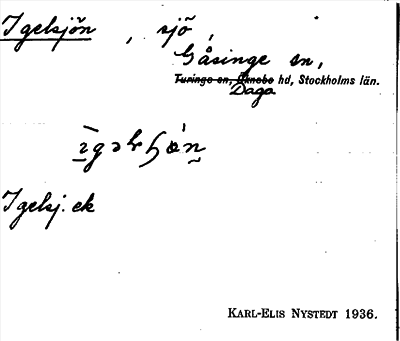 Igelsjön , sjö ,
Gåsinge sn,
Turinge sn, Öknebo hd, Stockholms län.
Daga
Igelsj. ek
KARL-ELIS NYSTEDT 1936.